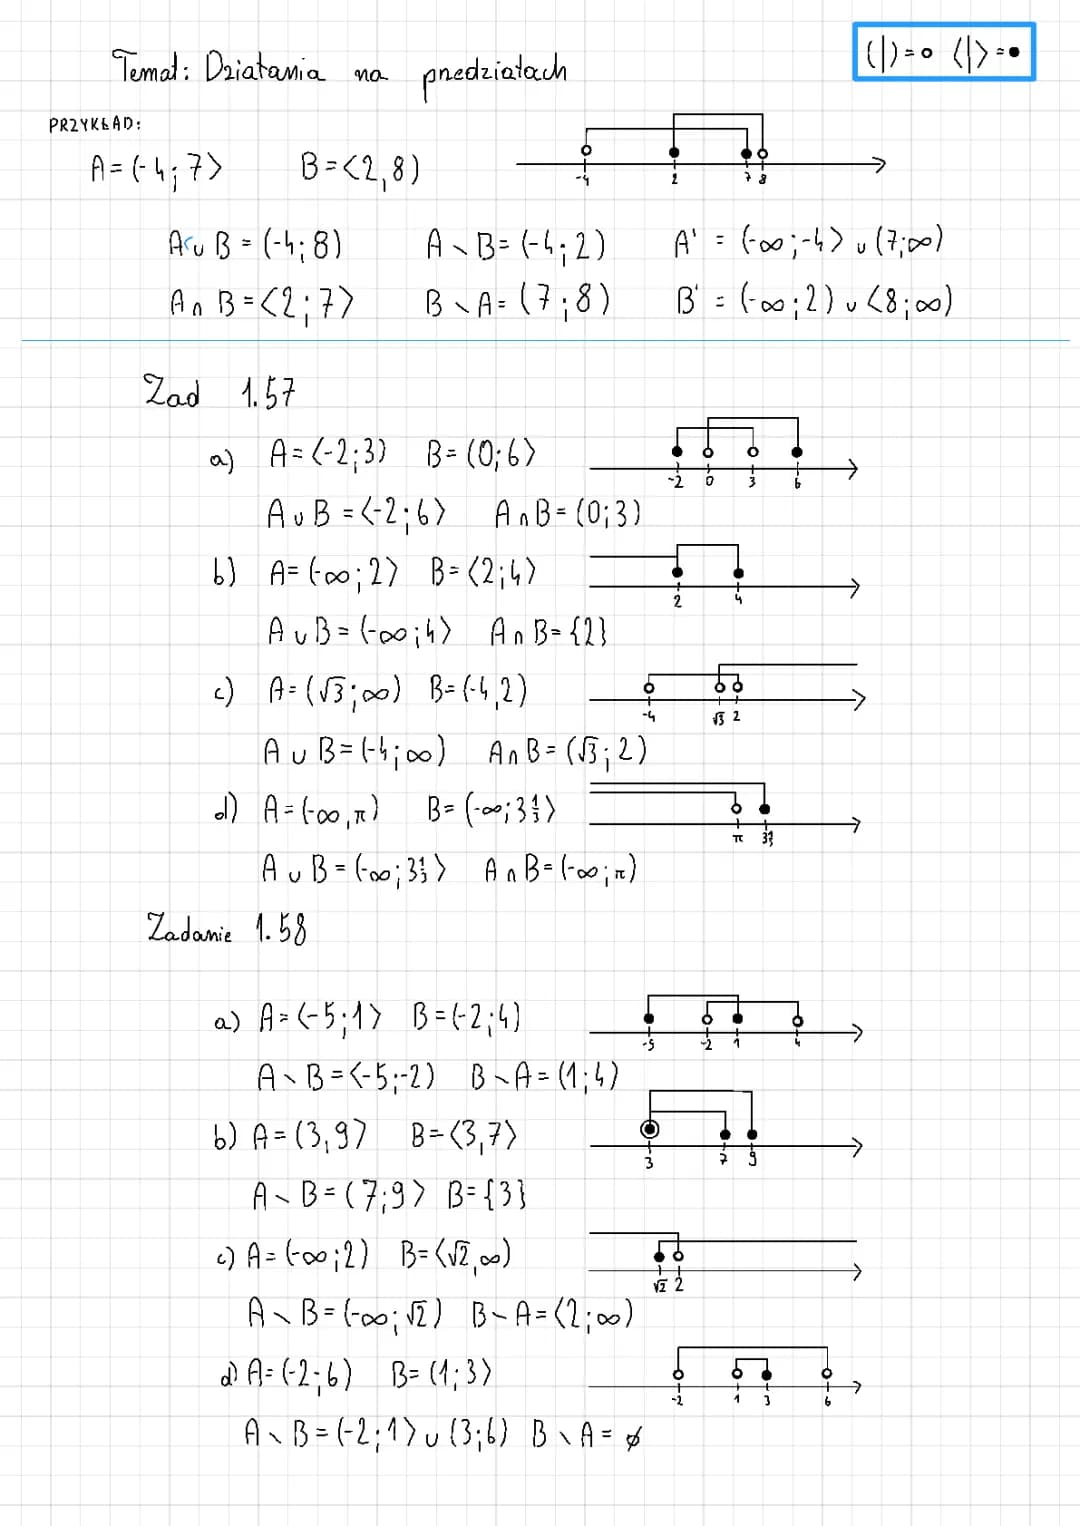 Temat: Działania na przedziałach
(|)=○ ⟨|⟩=●
PRZYKŁAD:
A=(-4;7⟩ B=⟨2,8)
-4 2 7 8
A∪B=(-4;8) A\B=(-4;2) A'=(-∞;-4⟩∪(7;∞)
A∩B=⟨2;7⟩ B\A=(7;8) B'=(-∞;2)∪⟨8;∞)
Zad 1.57
a) A=⟨-2;3) B=(0;6⟩
-2 0 3 6
A∪B=⟨-2;6⟩ A∩B=(0;3)
b) A=(-∞;2⟩ B=⟨2;4⟩
2 4
A∪B=(-∞;4⟩ A∩B={2}
c) A=(√3;∞) B=(-4,2)
-4 √3 2
A∪B=(-4;∞) A∩B=(√3;2)
d) A=(-∞,π) B=(-∞;3⅓⟩
π 3⅓
A∪B=(-∞;3⅓⟩ A∩B=(-∞;π)
Zadanie 1.58
a) A=⟨-5;1⟩ B=(-2;4)
-5 -2 1 4
A\B=⟨-5;-2) B\A=(1;4)
b) A=(3,9⟩ B=⟨3,7⟩
3 7 9
A\B=(7;9⟩ B={3}
c) A=(-∞;2) B=⟨√2,∞)
√2 2
A\B=(-∞;√2) B\A=⟨2;∞)
d) A=(-2;6) B=(1;3⟩
-2 1 3 6
A\B=(-2;1⟩∪(3;6) B\A=∅